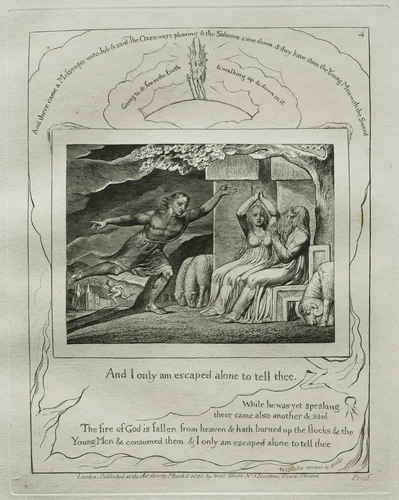 4
And there came a Messenger unto Job & said The Oxen were plowing & the Sabeans came down & they have slain the Young Men with the Sword
Going to & fro in the Earth
& walking up & down in it
And I only am escaped alone to tell thee.
While he was yet speaking
there came also another & said
The fire of God is fallen from heaven & hath burned up the flocks & the
Young Men & consumed them & I only am escaped alone to tell thee
WBlake invent & sculp
London. Published as the Act directs March 8 1825 by Will Blake N 3 Fountain Court Strand
Proof